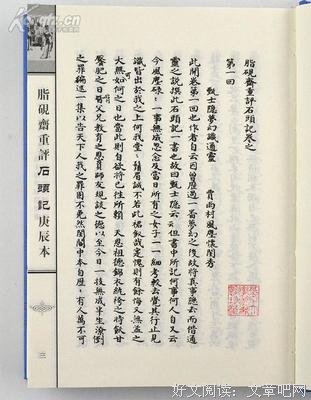 脂硯齋重評石頭記卷之
第一回
甄士隱夢幻識通靈　賈雨村風塵懷閨秀
此開卷第一回也作者自云因曾歷過一番夢幻之後故將真事隱去而借通
靈之說撰此石頭記一書也故曰甄士隱云云但書中所記何事何人自又云
今風塵碌碌一事無成忽念及當日所有之女子一一細考較去覺其行止見
識皆出於我之上何我堂堂鬚眉誠不若此裙釵哉寔愧則有餘悔又無益之
大無如何之日也當此則自欲將已往所賴　天恩祖德錦衣紈袴之時飫甘
饜肥之日背父兄教育之恩負師友規談之德以至今日一技無成半生潦倒
之罪編述一集以告天下人我之罪固不免然閨閣中本自歷歷有人萬不可
脂硯齋重評石頭記庚辰本
三
好文阅读：文章吧网